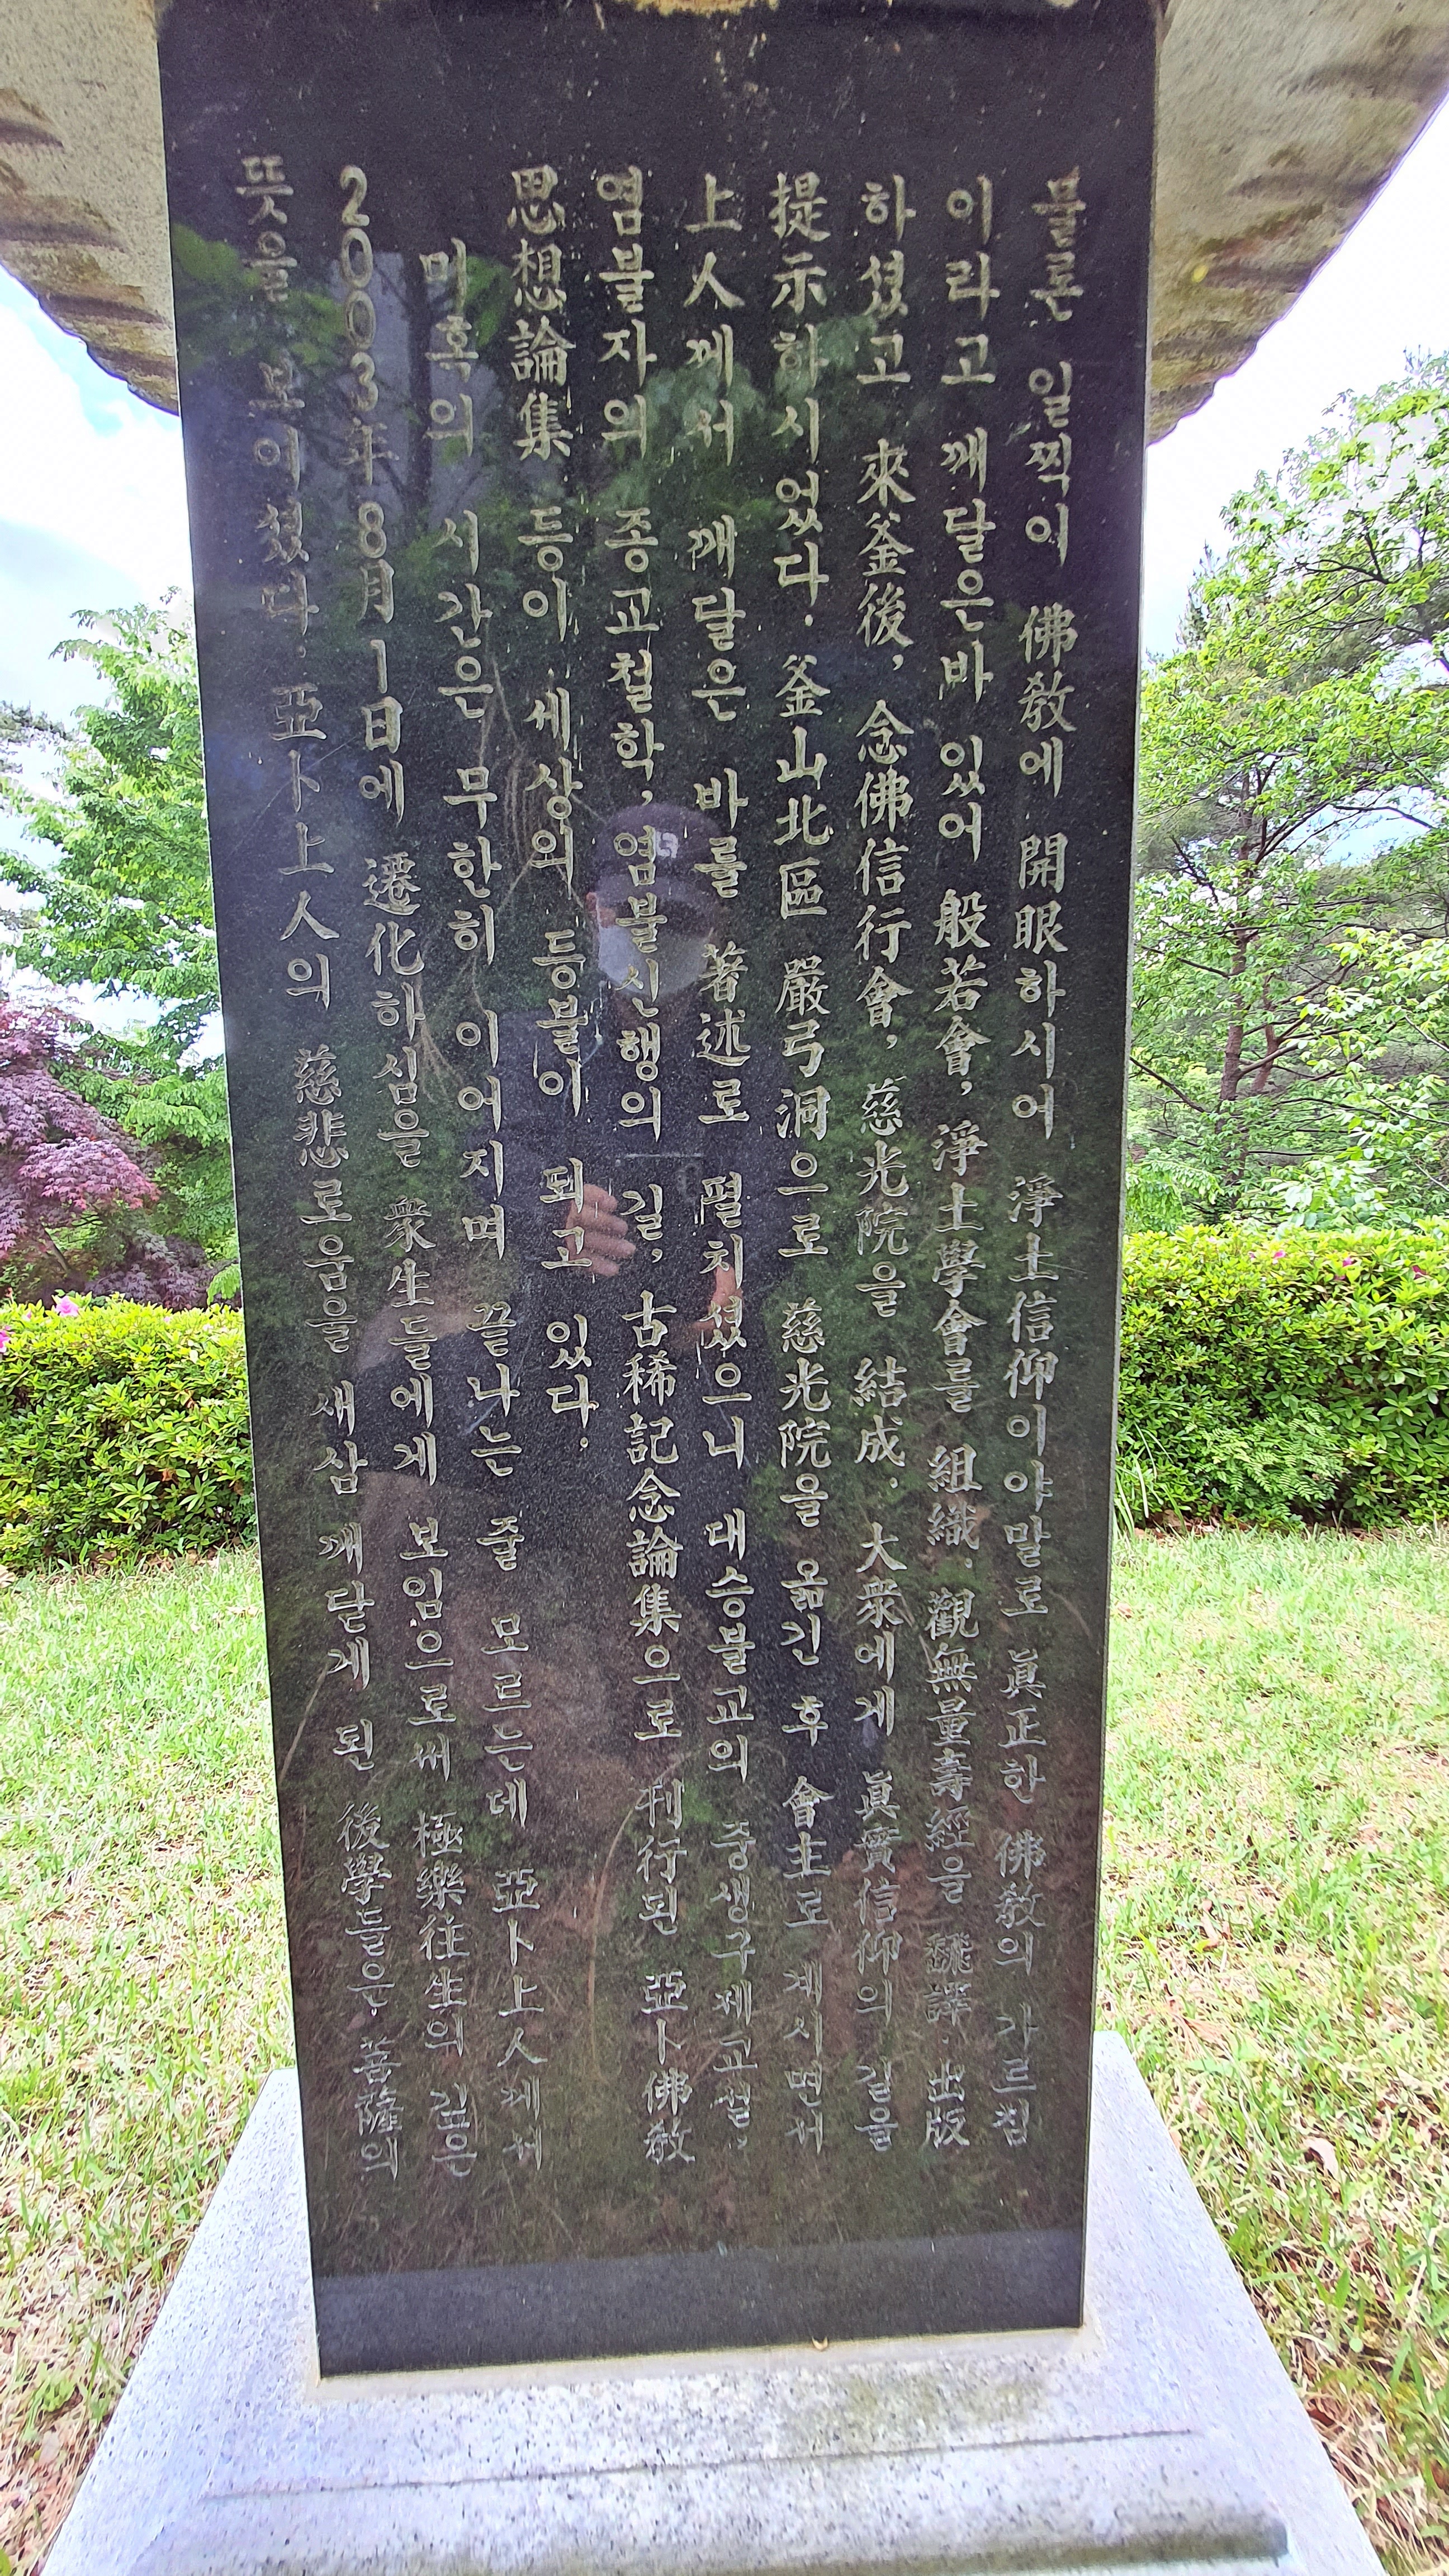 물론 일찍이 佛敎에 開眼하시어 淨土信仰이야말로 眞正한 佛敎의 가르침
이라고 깨달은바 있어 般若會, 淨土學會를 組織. 觀無量壽經을 飜譯. 出版
하셨고 來釜後, 念佛信行會, 慈光院을 結成. 大衆에게 眞實信仰의 길을
提示하시었다. 釜山北區 嚴弓洞으로 慈光院을 옮긴 후 會主로 계시면서
上人께서 깨달은 바를 著述로 펼치셨으니 대승불교의 중생구제교설,
염불자의 종교철학, 염불신행의 길, 古稀記念論集으로 刊行된 亞卜佛敎
思想論集 등이 세상의 등불이 되고 있다.
미혹의 시간은 무한히 이어지며 끝나는 줄 모르는데 亞卜上人께서
2003年 8月 1日에 遷化하심을 衆生들에게 보임으로써 極樂往生의 깊은
뜻을 보여셨다. 亞卜上人의 慈悲로움을 새삼 깨닫게 된 後學들은, 菩薩의